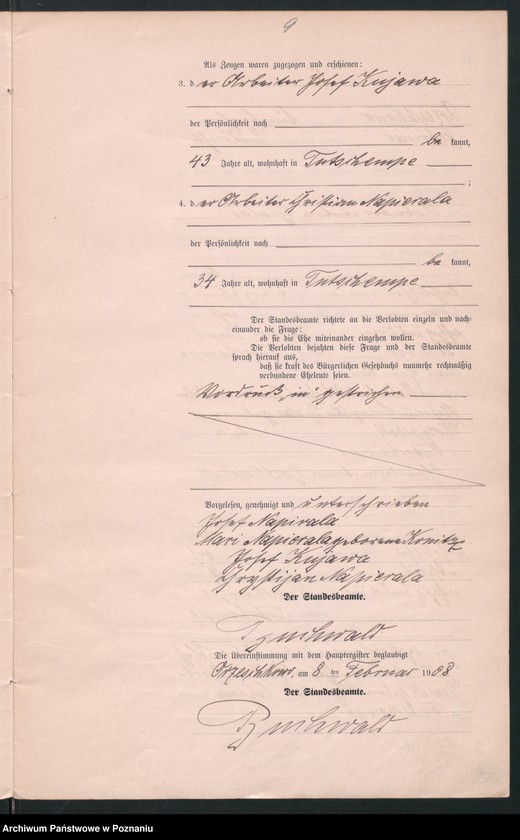 9
Als Zeugen waren zugezogen und erschienen:
3. der Arbeiter Josef Kujawa
der Persönlichkeit nach
be kannt,
43 Jahre alt, wohnhaft in Tutschempe
;
4. der Arbeiter Christian Napierala
der Persönlichkeit nach
be kannt,
34 Jahre alt, wohnhaft in Tutschempe
Der Standesbeamte richtete an die Verlobten einzeln und nach-
einander die Frage:
ob sie die Ehe miteinander eingehen wollen.
Die Verlobten bejahten diese Frage und der Standesbeamte
sprach hierauf aus,
daß sie kraft des Bürgerlichen Gesetzbuchs nunmehr rechtmäßig
verbundene Eheleute seien.
Vordruck „in“ gestrichen.
Vorgelesen, genehmigt und unterschrieben
Josef Napirala
Mari Napierala geborene Konitz
Josef Kujawa
Chrystijan Napierala
Der Standesbeamte.
Buchwald
Die Übereinstimmung mit dem Hauptregister beglaubigt
am 8ten Februar 1908
Der Standesbeamte.
Buchwald
Archiwum Państwowe w Poznaniu